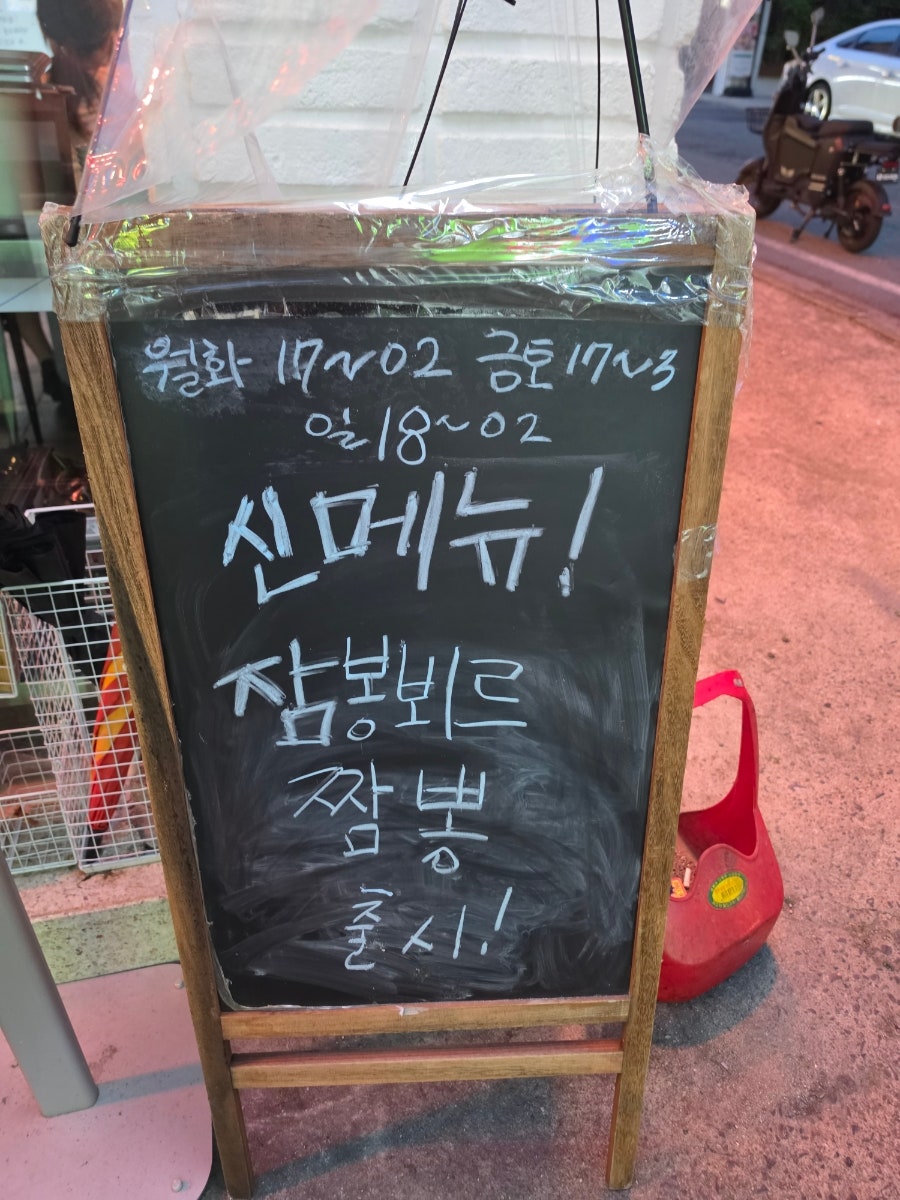 월화 17~02 금토 17~3
일 18~02
신메뉴!
잠봉뵈르
짬뽕
출시!